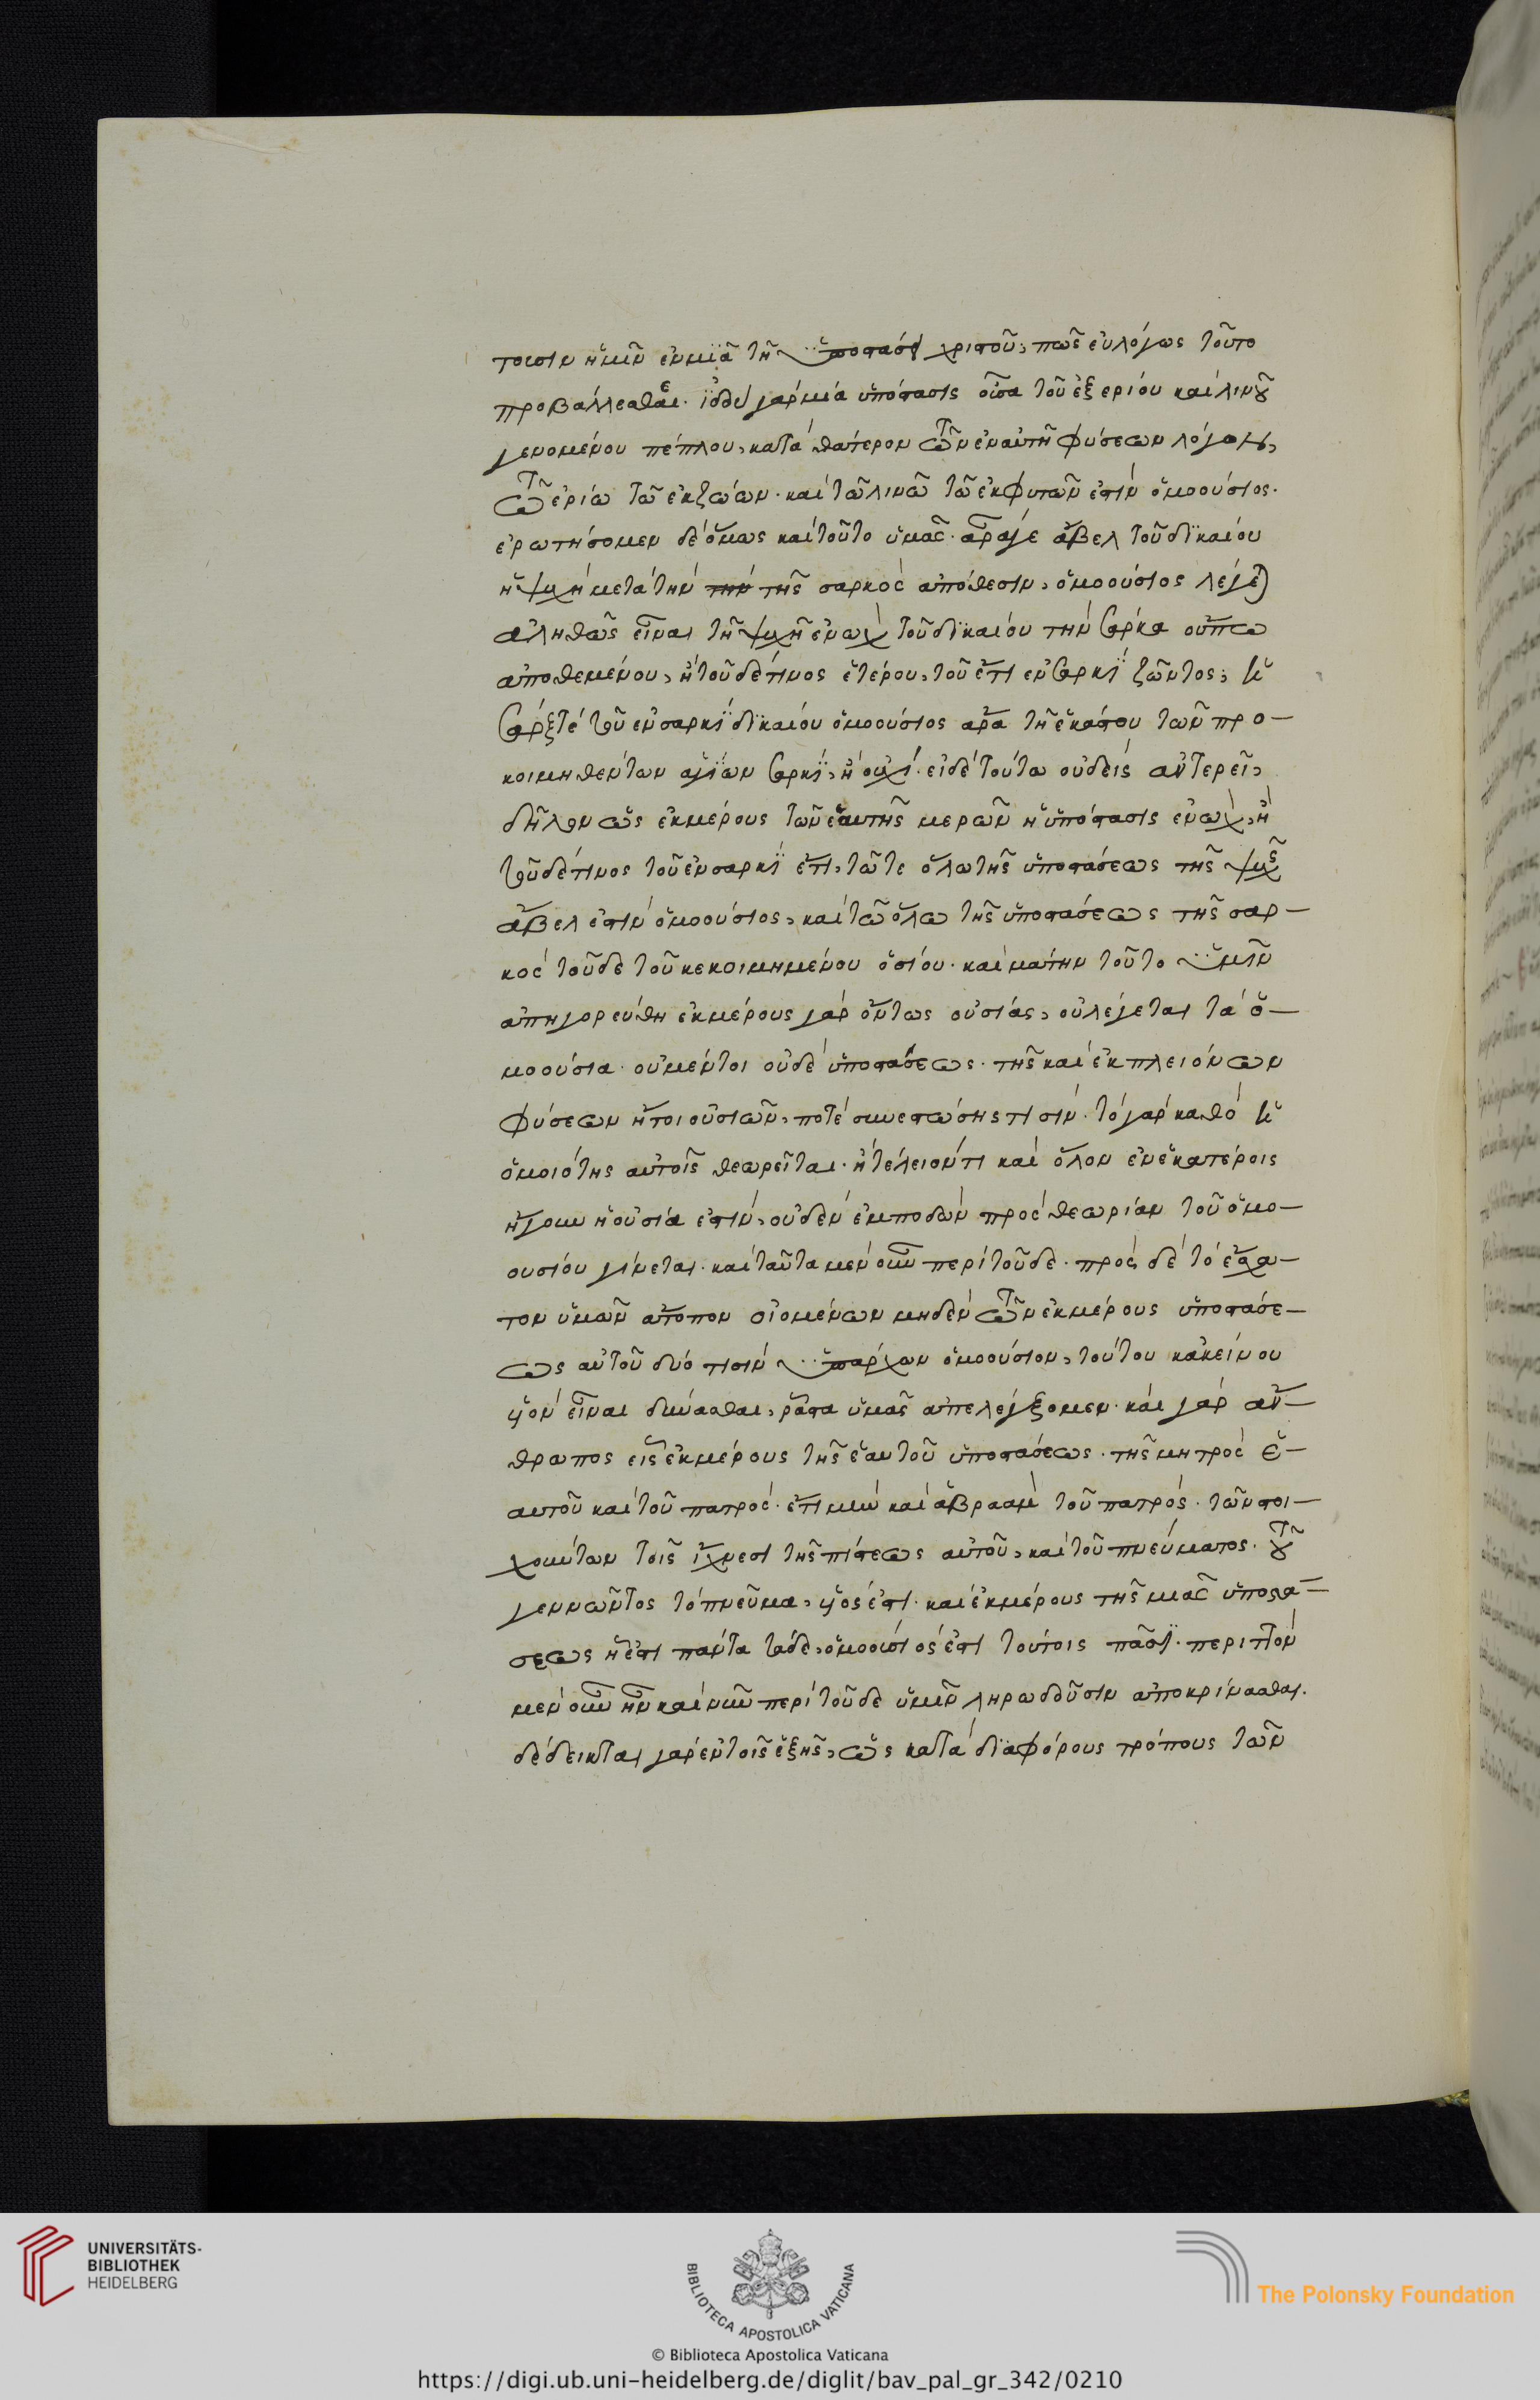 τοισιν ἡμῖν ἐν μιᾷ τῇ ὑποστάσει χριστοῦ, πῶς εὐλόγως τοῦτο
προβάλλεσθαι. ἰδοὺ γὰρ μία ὑπόστασις οὖσα τοῦ ἐξ ἐρίου καὶ λίνου
γενομένου πέπλου, κατὰ θάτερον τῶν ἐν αὐτῇ φύσεων λόγον,
τῷ ἐρίω τῷ ἐκ ζώων. καὶ τῷ λινῷ τῷ ἐκ φυτῶν ἐστὶν ὁμοούσιος.
ἐρωτήσομεν δὲ ὅμως καὶ τοῦτο ὑμᾶς. ἆρά γε ἄβελ τοῦ δικαίου
ἡ ψυχὴ μετὰ τὴν τὴν τῆς σαρκὸς ἀπόθεσιν, ὁμοούσιος λέγεται
ἀληθῶς εἶναι τῇ ψυχῇ ἐνὼχ τοῦ δικαίου τὴν σάρκα οὔπω
ἀποθεμένου, ἢ τοῦδέ τινος ἑτέρου, τοῦ ἔτι ἐν σαρκὶ ζῶντος, καὶ
σάρξ τε τοῦ ἐν σαρκὶ δικαίου ὁμοούσιος ἆρα τῇ ἑκάστου τῶν προ-
κοιμηθέντων ἁγίων σαρκί, ἢ οὐχί. εἰ δὲ τούτω οὐδεὶς ἀντερεῖ,
δῆλον ὡς ἐκ μέρους τῶν ἑαυτῆς μερῶν ἡ ὑπόστασις ἐνώχ, ἢ
τοῦδέ τινος τοῦ ἐν σαρκὶ ἔτι, τῷ τε ὅλω τῆς ὑποστάσεως τῆς ψυχῆς
ἄβελ ἐστὶν ὁμοούσιος, καὶ τῷ ὅλω τῆς ὑποστάσεως τῆς σαρ-
κὸς τοῦδε τοῦ κεκοιμημένου ὁσίου. καὶ μάτην τοῦτο ὑμῖν
ἀπηγορεύθη ἐκ μέρους γὰρ ὄντως οὐσίας, οὐ λέγεται τὰ ὁ-
μοούσια. οὐ μέντοι οὐδὲ ὑποστάσεως. τῆς καὶ ἐκ πλειόνων
φύσεων ἤτοι οὐσιῶν, ποτὲ συνεστώσης τισίν. τὸ γὰρ καθὸ ἡ
ὁμοιότης αὐτοῖς θεωρεῖται. ἢ τέλειόν τι καὶ ὅλον ἐν ἑκατέροις
ἤγουν ἡ οὐσία ἐστίν, οὐδὲν ἐμποδὼν πρὸς θεωρίαν τοῦ ὁμο-
ουσίου γίνεται. καὶ ταῦτα μὲν οὖν περὶ τοῦδε. πρὸς δὲ τὸ ἔσχα-
τον ὑμῶν ἄτοπον οἰομένων μηδὲν τῶν ἐκ μέρους ὑποστάσε-
ως αὐτοῦ δυό τισιν ὑπάρχων ὁμοούσιον, τούτου κἀκείνου
υἱὸν εἶναι δύνασθαι, ῥᾷστα ὑμᾶς ἀπελέγξομεν. καὶ γὰρ ἄν-
θρωπος εἷς ἐκ μέρους τῆς ἑαυτοῦ ὑποστάσεως. τῆς μητρὸς ἑ-
αυτοῦ καὶ τοῦ πατρός. ἔτι μὴν καὶ ἀβραὰμ τοῦ πατρός. τῶν στοι-
χούντων τοῖς ἴχνεσι τῆς πίστεως αὐτοῦ, καὶ τοῦ πνεύματος. τοῦ
γεννῶντος τὸ πνεῦμα, υἱός ἐστι. καὶ ἐκ μέρους τῆς μιᾶς ὑποστά-
σεως ἥ ἐστι πάντα τάδε, ὁμοούσιός ἐστι τούτοις πᾶσι. περιττὸν
μὲν οὖν ἦν καὶ νῦν περὶ τοῦδε ὑμῖν ληρωδοῦσιν ἀποκρίνασθαι.
δέδεικται γὰρ ἐν τοῖς ἑξῆς, ὡς κατὰ διαφόρους τρόπους τῶν
UNIVERSITÄTS-
BIBLIOTHEK
HEIDELBERG
BIBLIOTECA APOSTOLICA VATICANA
The Polonsky Foundation
© Biblioteca Apostolica Vaticana
https://digi.ub.uni-heidelberg.de/diglit/bav_pal_gr_342/0210